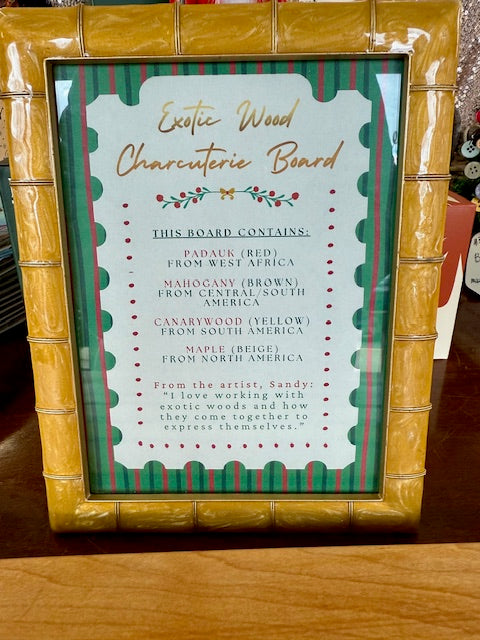 Exotic Wood
Charcuterie Board
THIS BOARD CONTAINS:
PADAUK (RED)
FROM WEST AFRICA
MAHOGANY (BROWN)
FROM CENTRAL/SOUTH
AMERICA
CANARYWOOD (YELLOW)
FROM SOUTH AMERICA
MAPLE (BEIGE)
FROM NORTH AMERICA
From the artist, Sandy:
“I love working with
exotic woods and how
they come together to
express themselves.”